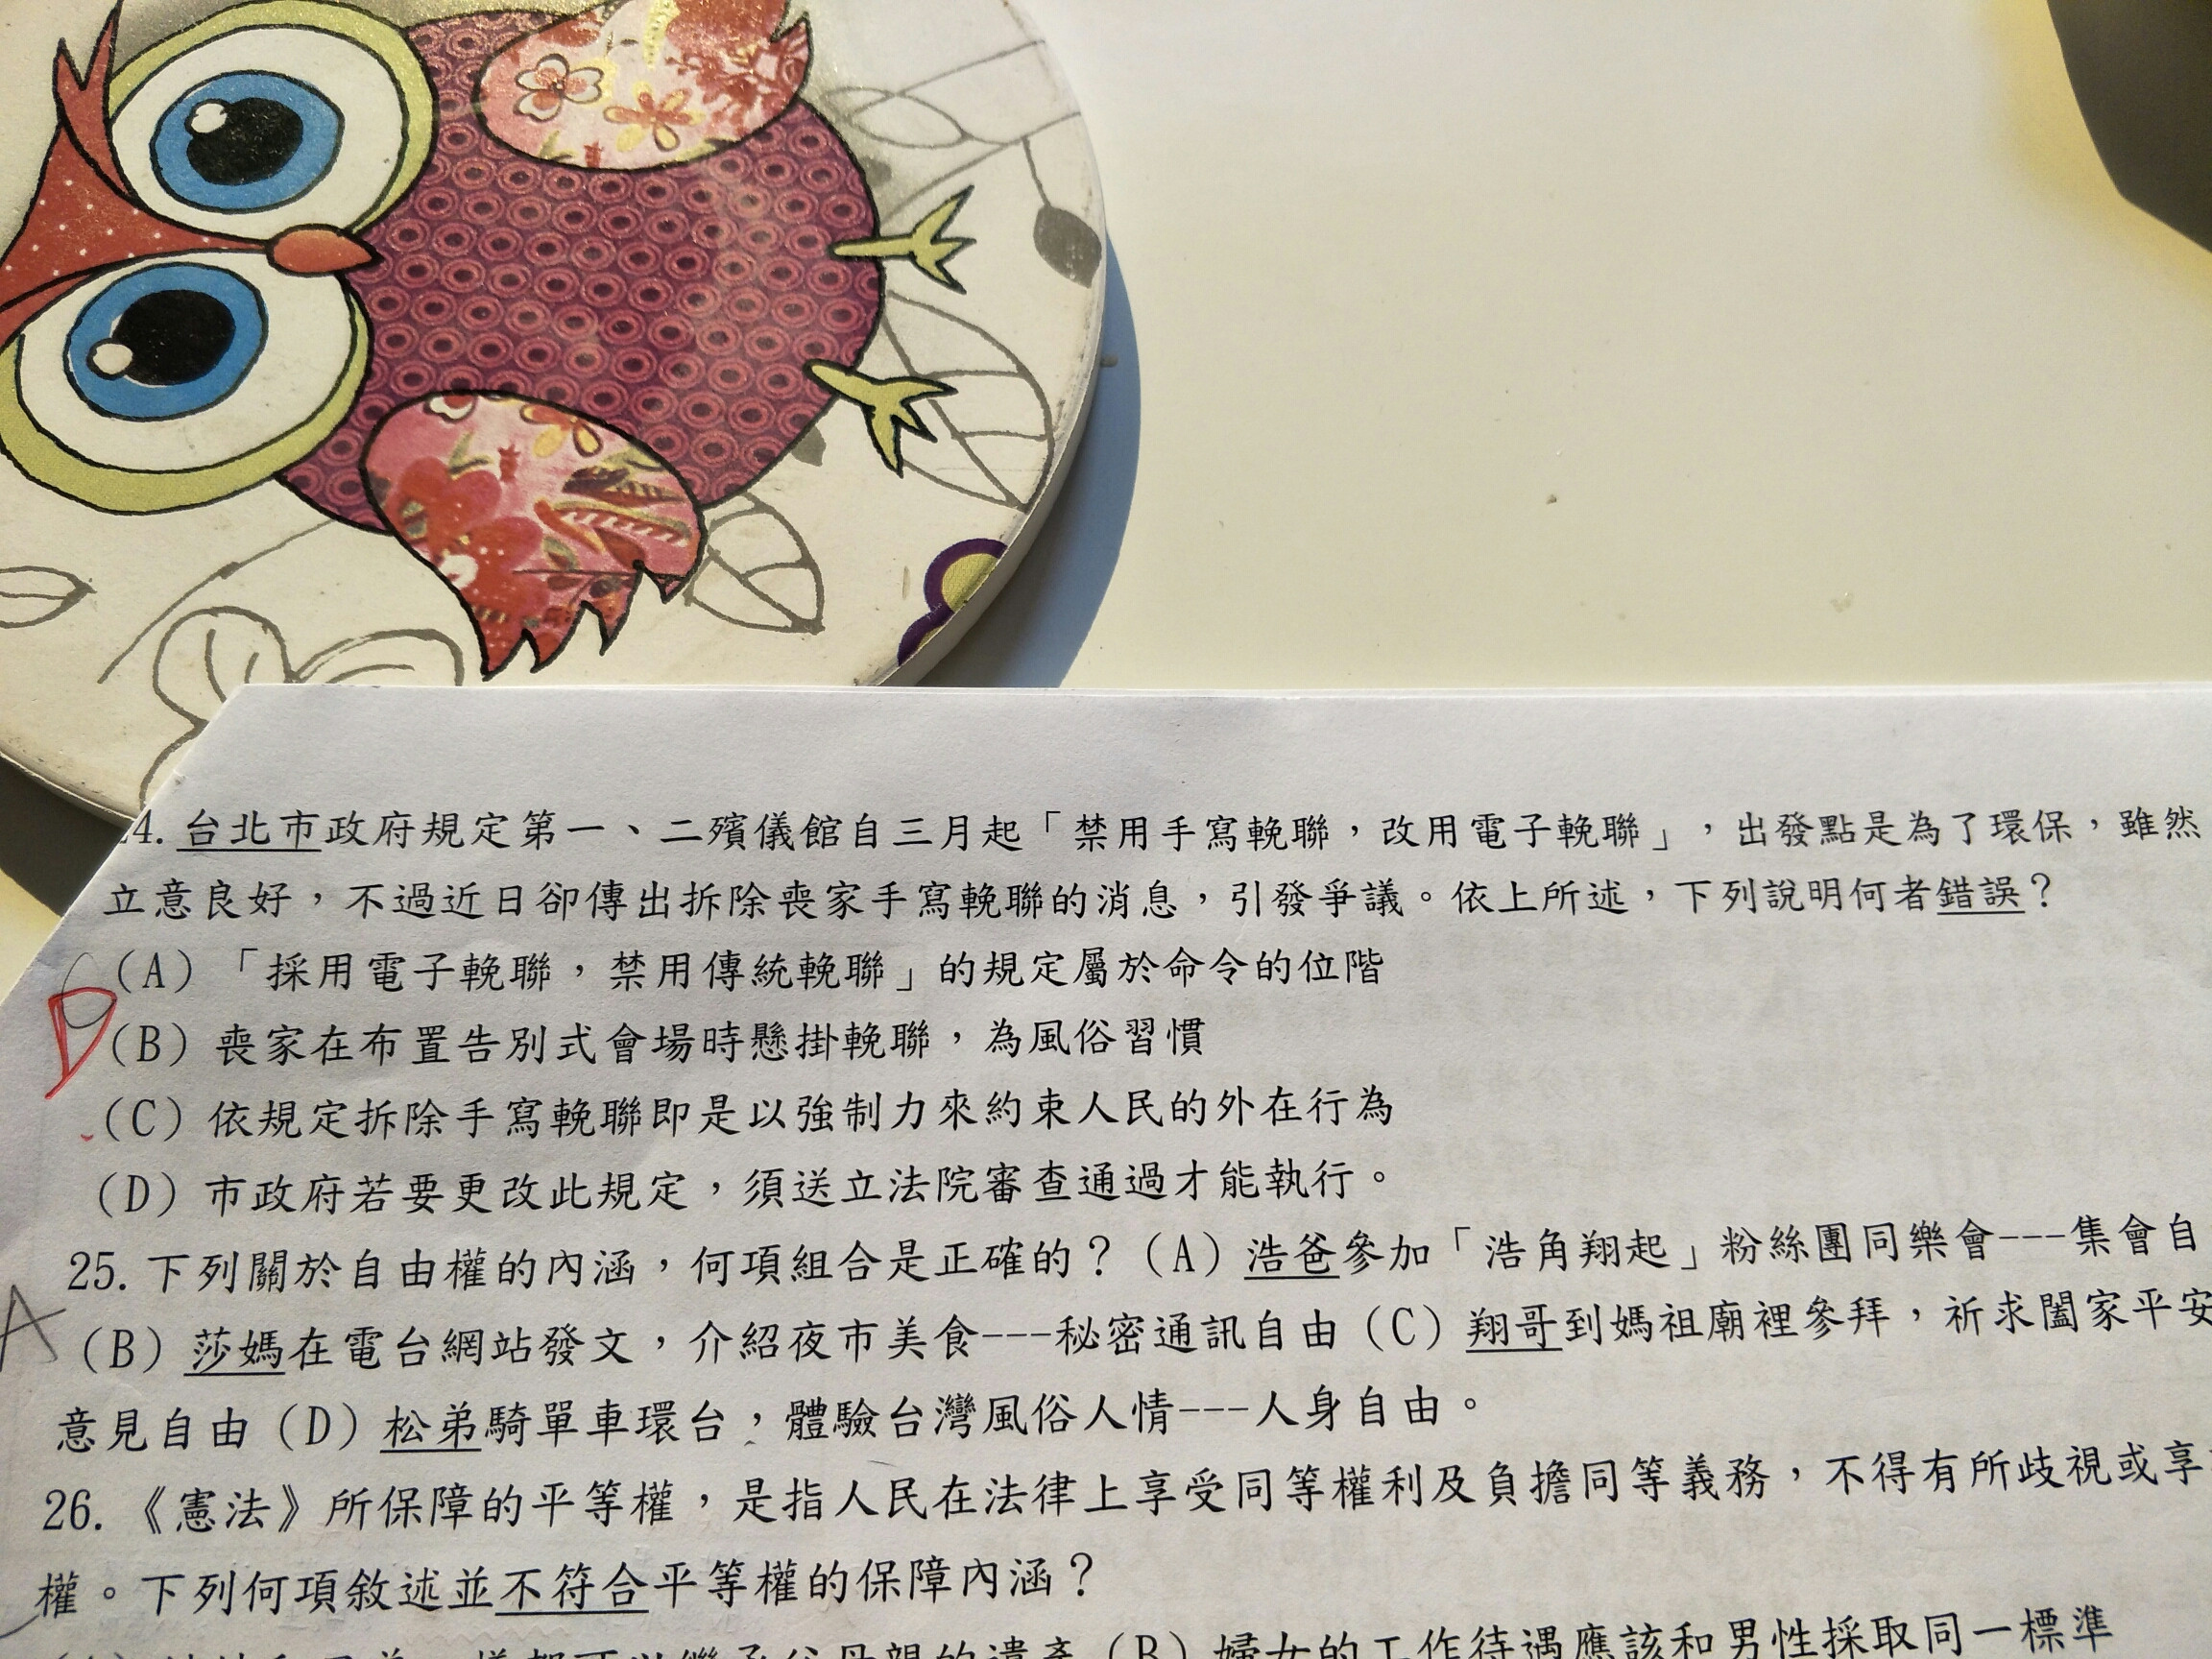 4. 台北市政府規定第一、二殯儀館自三月起「禁用手寫輓聯，改用電子輓聯」，出發點是為了環保，雖然
立意良好，不過近日卻傳出拆除喪家手寫輓聯的消息，引發爭議。依上所述，下列說明何者錯誤？
(A)「採用電子輓聯，禁用傳統輓聯」的規定屬於命令的位階
D
(B) 喪家在布置告別式會場時懸掛輓聯，為風俗習慣
(C) 依規定拆除手寫輓聯即是以強制力來約束人民的外在行為
(D) 市政府若要更改此規定，須送立法院審查通過才能執行。
25. 下列關於自由權的內涵，何項組合是正確的？(A) 浩爸參加「浩角翔起」粉絲團同樂會---集會自
A
(B) 莎媽在電台網站發文，介紹夜市美食---秘密通訊自由 (C) 翔哥到媽祖廟裡參拜，祈求闔家平安
意見自由 (D) 松弟騎單車環台，體驗台灣風俗人情---人身自由。
26. 《憲法》所保障的平等權，是指人民在法律上享受同等權利及負擔同等義務，不得有所歧視或享
權。下列何項敘述並不符合平等權的保障內涵？
一樣都可以繼承父母親的遺產 (B) 婦女的工作待遇應該和男性採取同一標準